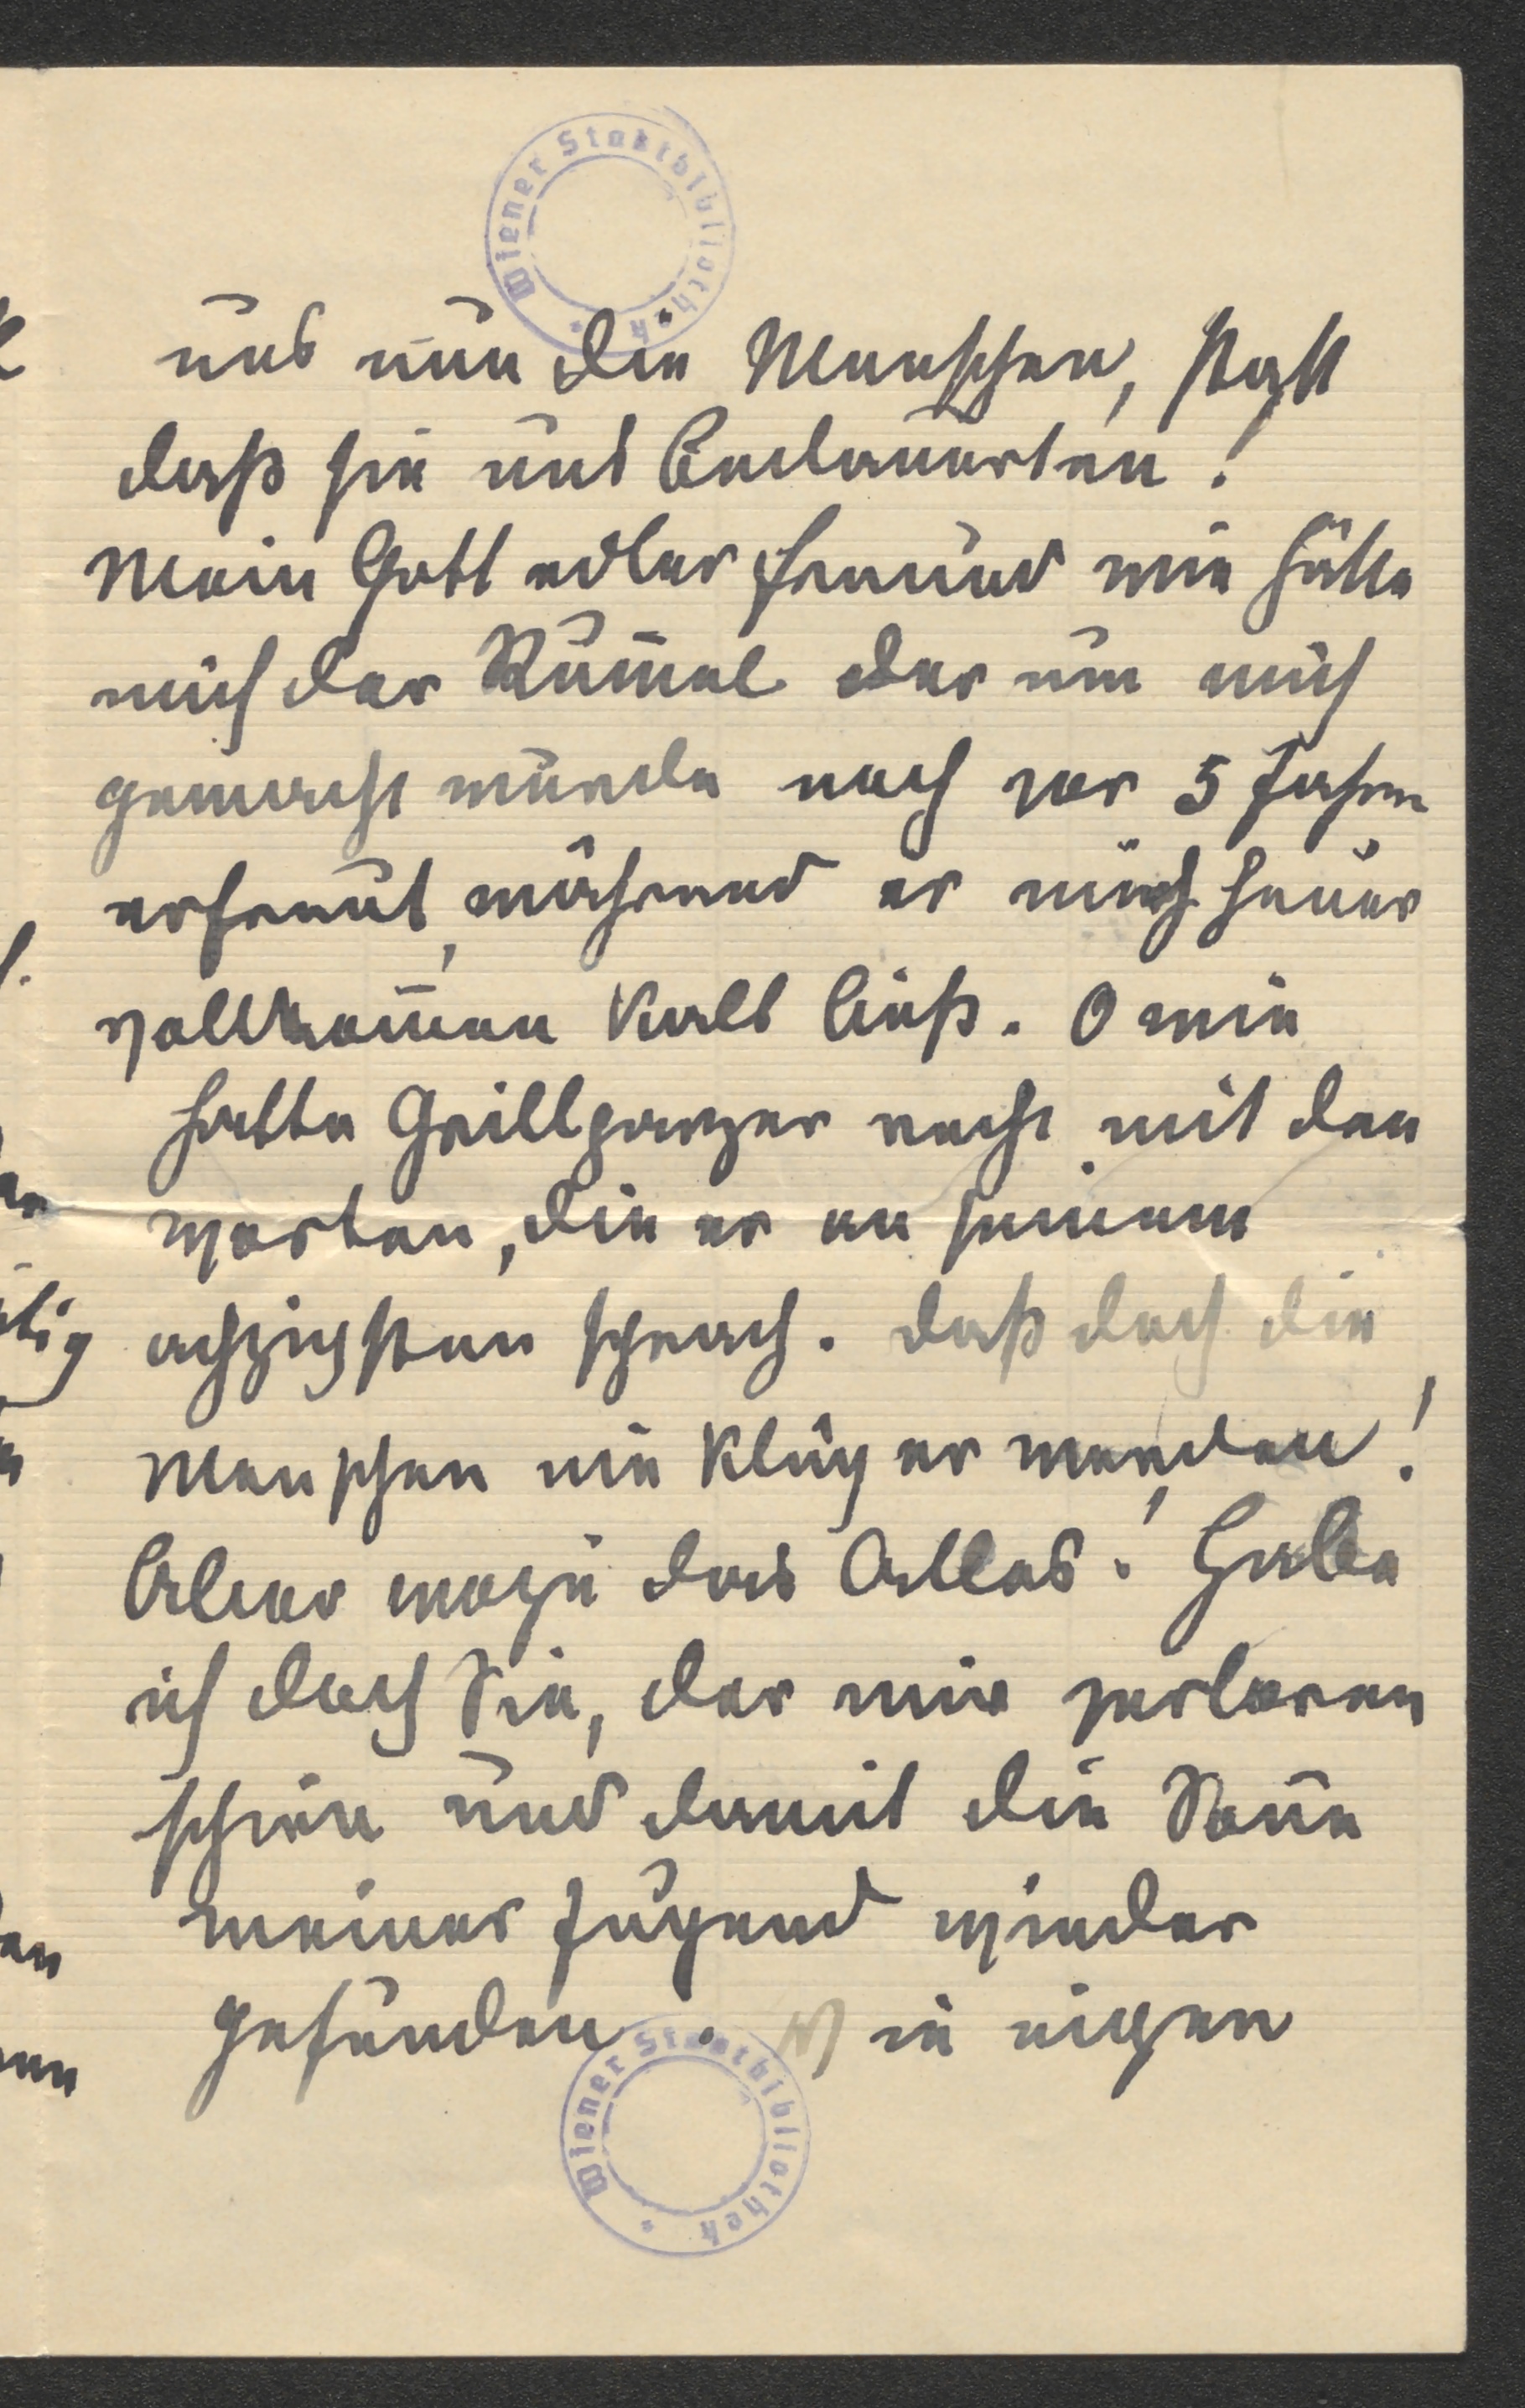 Wiener Stadtbibliothek
uns nun die Menschen, statt
daß sie uns bedauerten!
Mein Gott edler Freund wie hätte
mich der Rum̅el der um mich
gemacht wurde noch vor 5 Jahren
erfreut, während er mich heuer
vollkom̅en kalt ließ. O wie
hatte Grillparzer recht mit den
Worten, die er an seinem
achzigsten sprach. Daß doch die
Menschen nie klüger werden!
Aber wozu das Alles! Habe
ich doch Sie, der mir verloren
schien und damit die Son̅e
meiner Jugend wieder
gefunden. in eigen
Wiener Stadtbibliothek